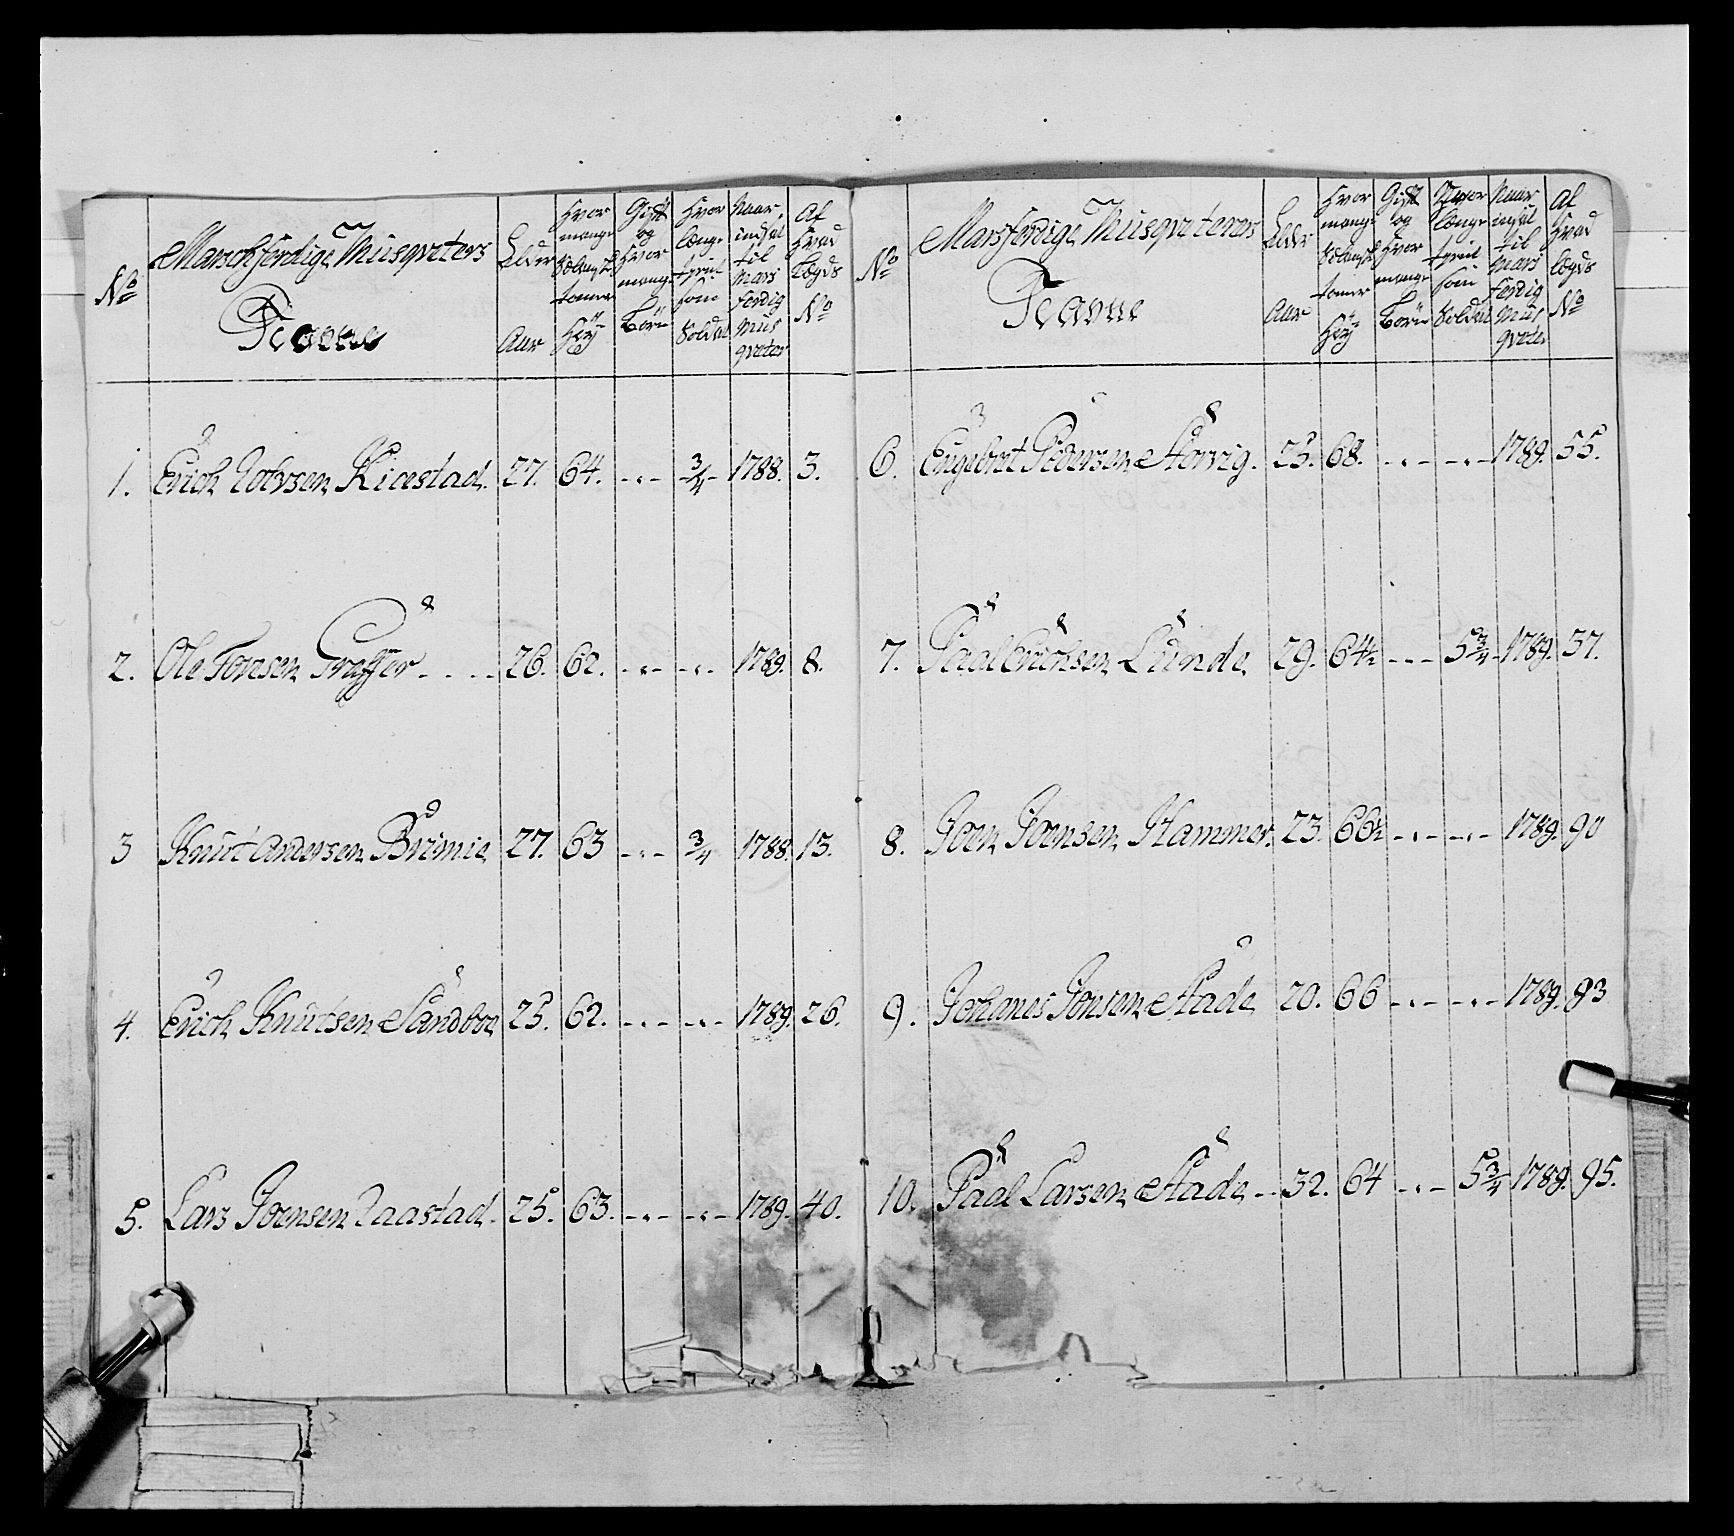 No
Marschferdige Musqveters
Navne
Elder
Aar
Hvor
mange
tomer
Höÿ
Gift
og
Hvor
mange
Börn
Hvor
længe
tient
som
Soldat
Naar
indsat
til
Mars
ferdig
Mus
qveter
Af
Hvad
Lægds
No
1. Erich Kiæstad. 27. 64. - „ - 3/4 1788. 3.
2. Ole Tornsen Graffer .... 26. 62. - „ - - „ - 1789. 8.
3 Knut Andersen Brimie 27. 63 - „ - 3/4 1788. 13.
4. Erich Knutsen Sandboe 25. 62. - „ - - „ - 1789. 26.
5. Lars Joensen Aaastad. 25. 63. - „ - - „ - 1789. 40.
No
Marsferdige Musqveterer
Navne
Elder
Aar
Hvor
mange
tomer
Höÿ
Gift
og
Hvor
mange
Börn
Hvor
længe
tient
som
Soldat
Naar
indsat
til
Mars
ferdig
Mus
qveter
Af
Hvad
Lægds
No
6. Engebret Pedersen Storvig. 25. 68. - „ - - „ - 1789. 55.
7. Paal Erichsen Lunde 29. 64½ - - - 5 3/4 1789. 57.
8. Joen Joensen Hammer. 23. 66½ - „ - - „ - 1789. 90
9. Johanes Jonsen Stade 20. 66 - „ - - „ - 1789. 93
10. Paal Larsen Stade .. 32. 64 - „ - 5 3/4 1789. 95.